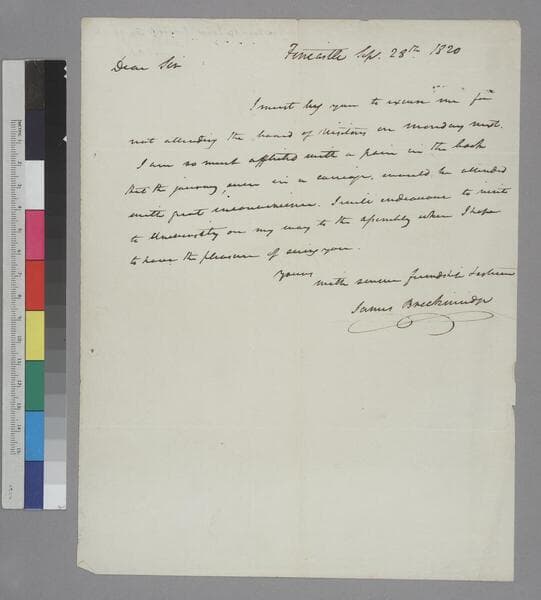 Fincastle Sep. 28th 1820
Dear Sir
I must beg you to excuse me for
not attending the board of Visitors on monday next.
I am so much afflicted with a pain in the back
that the journey even in a carriage, would be attended
with great inconvenience. I will endeavour to visit
to University on my way to the assembly when I hope
to have the pleasure of seeing you.
Yours
with sincere friendship &
James Breckinridge